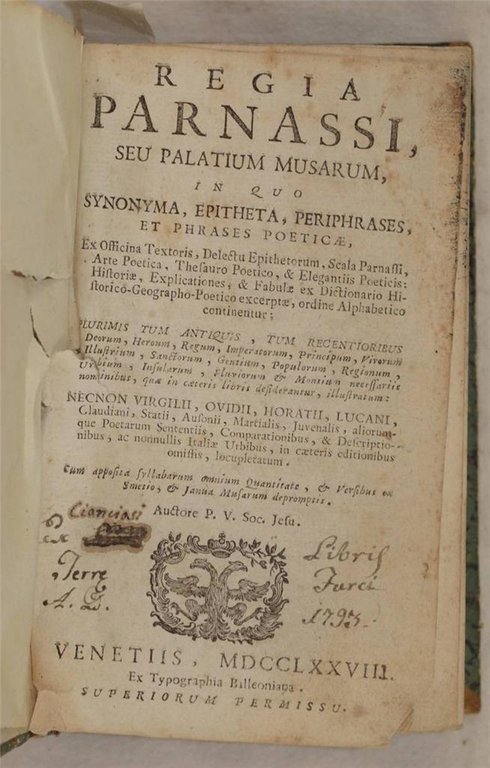 REGIA
PARNASSI,
SEU PALATIUM MUSARUM,
IN QUO
SYNONYMA, EPITHETA, PERIPHRASES,
ET PHRASES POETICÆ,
Ex Officina Textoris, Delectu Epithetorum, Scala Parnassi,
Arte Poetica, Thesauro Poetico, & Elegantiis Poeticis;
Historiæ, Explicationes, & Fabulæ ex Dictionario Hi-
storico-Geographo-Poetico excerptæ, ordine Alphabetico
continentur;
PLURIMIS TUM ANTIQUIS, TUM RECENTIORIBUS
Deorum, Heroum, Regum, Imperatorum, Principum, Virorum
Illustrium, Sanctorum, Gentium, Populorum, Regionum,
Urbium, Insularum, Fluviorum & Montium necessariis
nominibus, quæ in cæteris libris desiderantur, illustratum:
NECNON VIRGILII, OVIDII, HORATII, LUCANI,
Claudiani, Statii, Ausonii, Martialis, Juvenalis, aliorum-
que Poetarum Sententiis, Comparationibus, & Descriptio-
nibus, ac nonnullis Italiæ Urbibus, in cæteris editionibus
omissis, locupletatum.
Cum apposita syllabarum omnium Quantitate, & Versibus ex
Smetio, & Janua Musarum depromptis.
Auctore P. V. Soc. Jesu.
Libris
Furci
1793
VENETIIS, MDCCLXXVIII.
Ex Typographia Balleoniana.
SUPERIORUM PERMISSU.